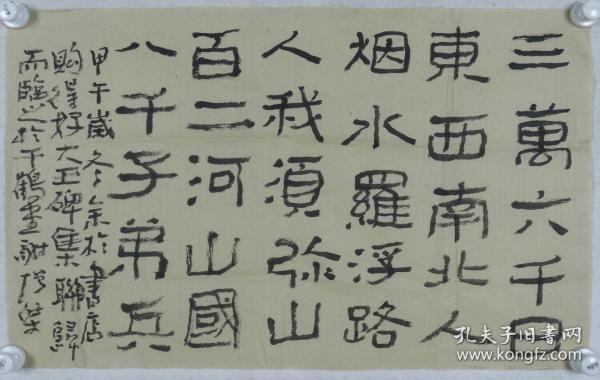 三萬六千日
東西南北人
烟水羅浮路
人我須弥山
百二河山國
八千子弟兵
甲午歲冬余於書店
購得好大王碑集聯歸
而臨之於千鶴畫
孔夫子旧书网
www.kongfz.com